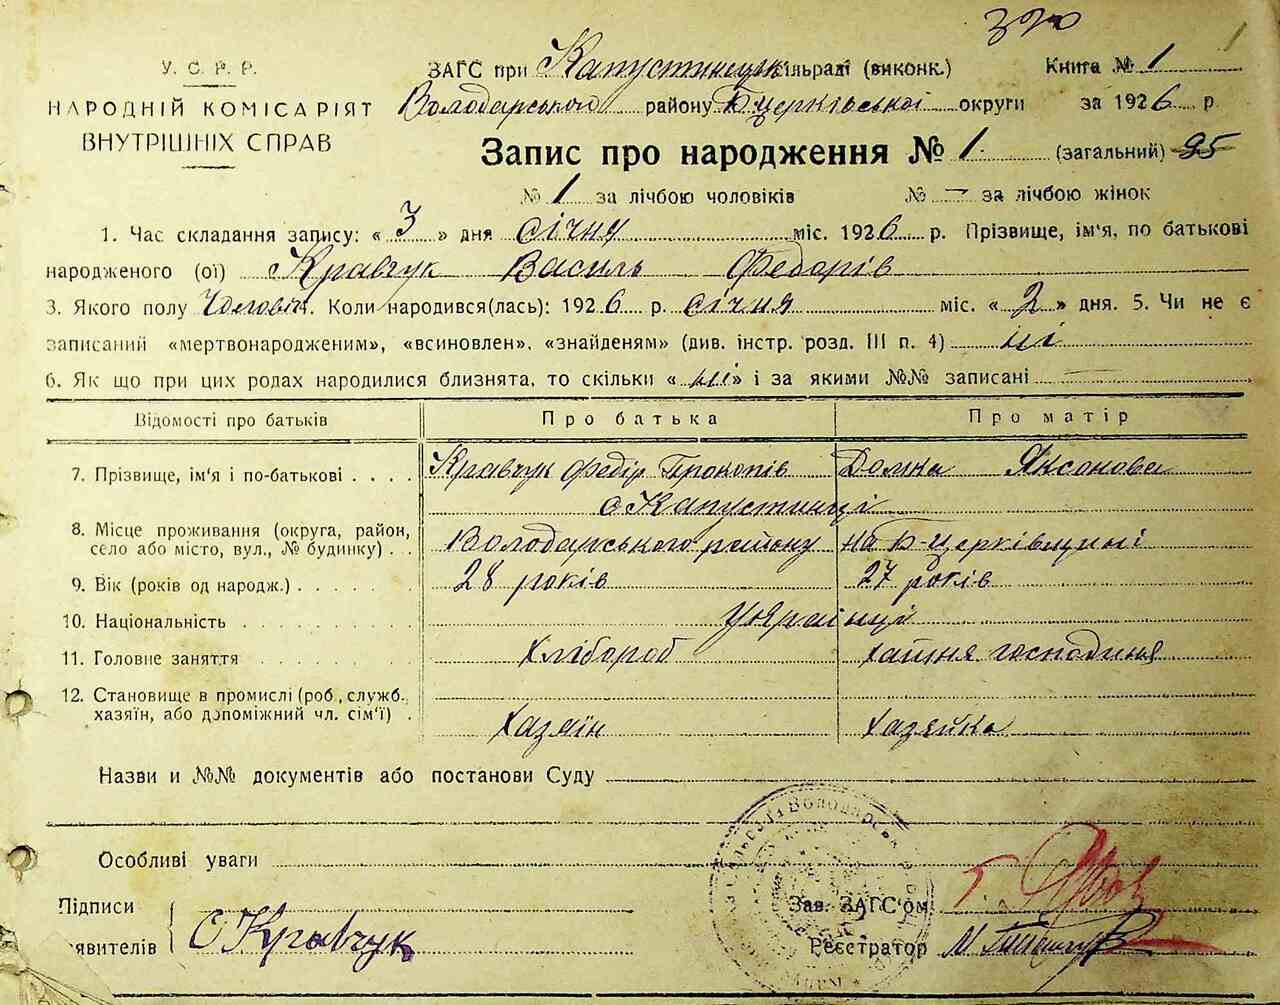 370
1
У. С. Р. Р.
НАРОДНІЙ КОМІСАРІЯТ
ВНУТРІШНІХ СПРАВ
ЗАГС при Капустинцях сільраді (виконк.) Книга № 1
Володарського району Б церківської округи за 1926 р
Запис про народження № 1. (загальний) 95
№ 1 за лічбою чоловіків № — за лічбою жінок
1. Час складання запису: « 3 » дня січну міс. 1926 р. Прізвище, ім'я, по батькові
народженого (ої) Кравчук Василь Федорів
3. Якого полу Чоловіч. Коли народився(лась): 1926 р. січня міс. « 2 » дня. 5. Чи не є
записаний «мертвонародженим», «всиновлен», «знайденям» (див. інстр. розд. III п. 4) ні
6. Як що при цих родах народилися близнята, то скільки « ні » і за якими №№ записані —
Відомості про батьків Про батька Про матір
7. Прізвище, ім'я і по-батькові . . . . Кравчук Федір Прокопів Домка Яксонова
с Капустинці
8. Місце проживання (округа, район,
село або місто, вул., № будинку) . . Володарського району на Б-Церківщині
9. Вік (років од народж.) . . . . . . . 28 років 27 років
10. Національність . . . . . . . . . Українці
11. Головне заняття . . . . . . . . Хлібороб хатня господиня
12. Становище в промислі (роб., служб.,
хазяїн, або допоміжний чл. сім'ї) . Хазяїн Хазяйка
Назви и №№ документів або постанови Суду
Особливі уваги
Підписи
заявителів Є Кравчук
Зав. ЗАГС'ом
Реєстратор М.